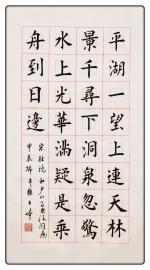 平湖一望上連天林
景千尋下洞泉忽驚
水上光華滿疑是乘
舟到日邊